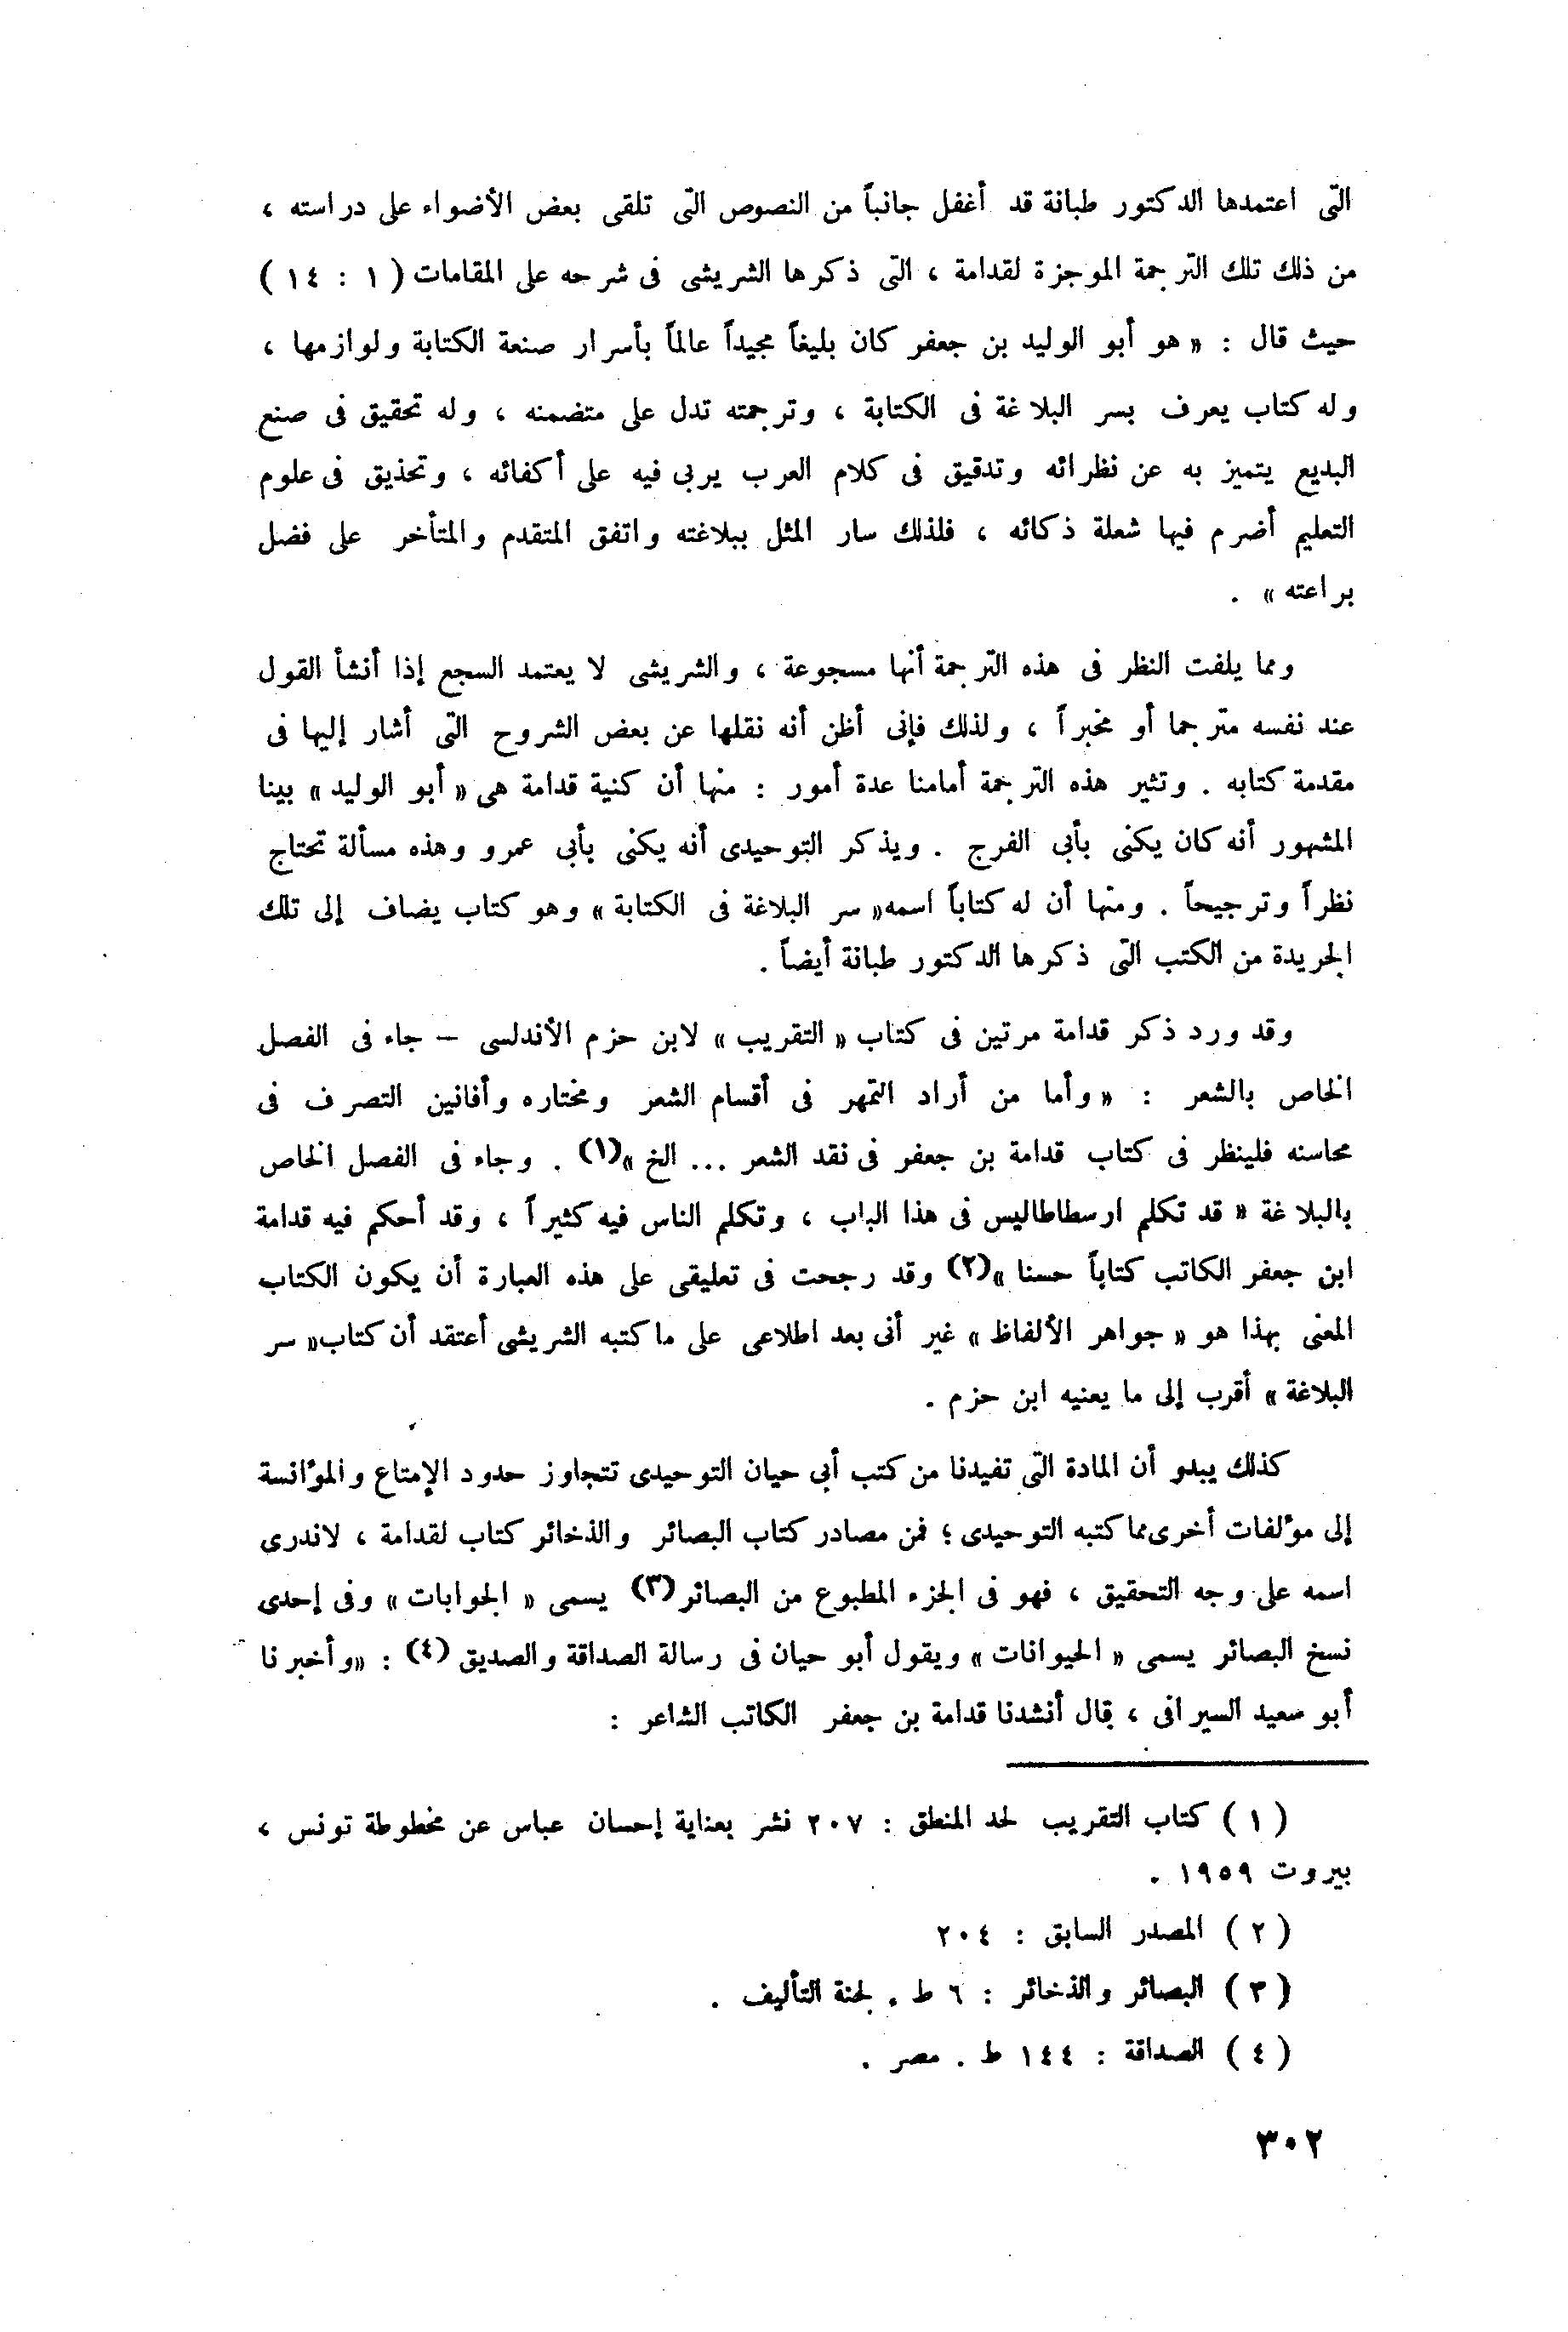 التى اعتمدها الدكتور طبانة قد أغفل جانباً من النصوص التى تلقى بعض الأضواء على دراسته ،
من ذلك تلك الترجمة الموجزة لقدامة ، التى ذكرها الشريشى فى شرحه على المقامات ( ١ : ١٤ )
حيث قال : « هو أبو الوليد بن جعفر كان بليغاً مجيداً عالماً بأسرار صنعة الكتابة ولوازمها ،
وله كتاب يعرف بسر البلاغة فى الكتابة ، وترجمته تدل على متضمنه ، وله تحقيق فى صنع
البديع يتميز به عن نظرائه وتدقيق فى كلام العرب يربى فيه على أكفائه ، وتحذيق فى علوم
التعليم أضرم فيها شعلة ذكائه ، فلذلك سار المثل ببلاغته واتفق المتقدم والمتأخر على فضل
براعته » .
ومما يلفت النظر فى هذه الترجمة أنها مسجوعة ، والشريشى لا يعتمد السجع إذا أنشأ القول
عند نفسه مترجما أو مخبراً ، ولذلك فإنى أظن أنه نقلها عن بعض الشروح التى أشار إليها فى
مقدمة كتابه . وتثير هذه الترجمة أمامنا عدة أمور : منها أن كنية قدامة هى « أبو الوليد » بينا
المشهور أنه كان يكنى بأبى الفرج . ويذكر التوحيدى أنه يكنى بأبى عمرو وهذه مسألة تحتاج
نظراً وترجيحاً . ومنها أن له كتاباً اسمه « سر البلاغة فى الكتابة » وهو كتاب يضاف إلى تلك
الجريدة من الكتب التى ذكرها الدكتور طبانة أيضاً .
وقد ورد ذكر قدامة مرتين فى كتاب « التقريب » لابن حزم الأندلسى – جاء فى الفصل
الخاص بالشعر : « وأما من أراد التمهر فى أقسام الشعر ومختاره وأفانين التصرف فى
محاسنه فلينظر فى كتاب قدامة بن جعفر فى نقد الشعر ... الخ »(١) . وجاء فى الفصل الخاص
بالبلاغة « قد تكلم ارسطاطاليس فى هذا الباب ، وتكلم الناس فيه كثيراً ، وقد أحكم فيه قدامة
ابن جعفر الكاتب كتاباً حسنا »(٢) وقد رجحت فى تعليقى على هذه العبارة أن يكون الكتاب
المعنى بهذا هو « جواهر الألفاظ » غير أنى بعد اطلاعى على ما كتبه الشريشى أعتقد أن كتاب « سر
البلاغة » أقرب إلى ما يعنيه ابن حزم .
كذلك يبدو أن المادة التى تفيدنا من كتب أبى حيان التوحيدى تتجاوز حدود الإمتاع والمؤانسة
إلى مؤلفات أخرى مما كتبه التوحيدى ؛ فمن مصادر كتاب البصائر والذخائر كتاب لقدامة ، لاندرى
اسمه على وجه التحقيق ، فهو فى الجزء المطبوع من البصائر(٣) يسمى « الجوابات » وفى إحدى
نسخ البصائر يسمى « الحيوانات » ويقول أبو حيان فى رسالة الصداقة والصديق (٤) : « وأخبرنا
أبو سعيد السيرافى ، قال أنشدنا قدامة بن جعفر الكاتب الشاعر :
( ١ ) كتاب التقريب لحد المنطق : ٢٠٧ نشر بعناية إحسان عباس عن مخطوطة تونس ،
بيروت ١٩٥٩ .
( ٢ ) المصدر السابق : ٢٠٤
( ٣ ) البصائر والذخائر : ٦ ط . لجنة التأليف .
( ٤ ) الصداقة : ١٤٤ ط . مصر .
٣٠٢